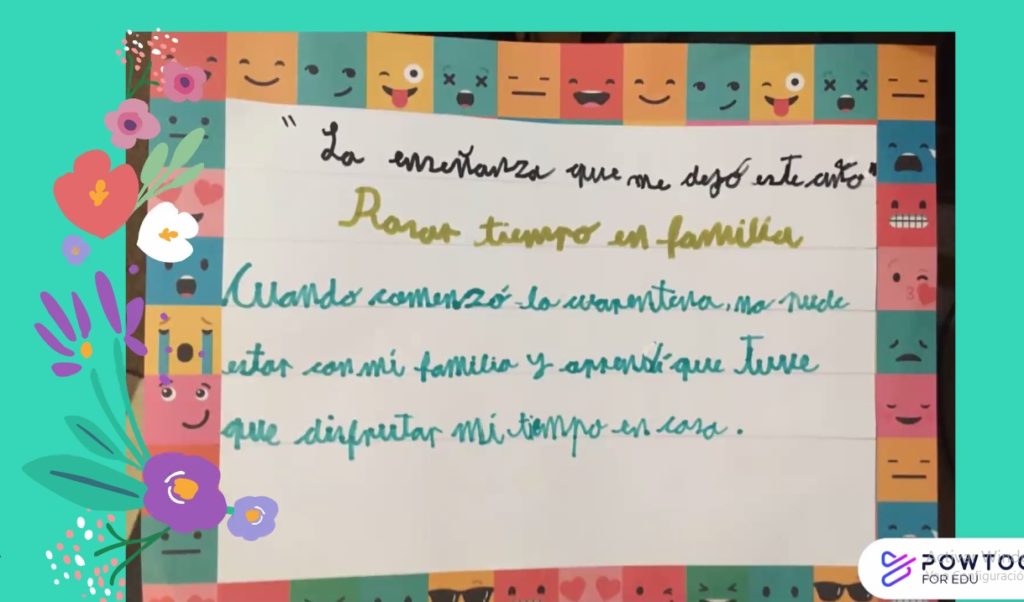 " La enseñanza que me dejó este año"
Pasar tiempo en familia
Cuando comenzó la cuarentena, no pude
estar con mi familia y aprendí que tuve
que disfrutar mi tiempo en casa.
POWTOO
FOR EDU